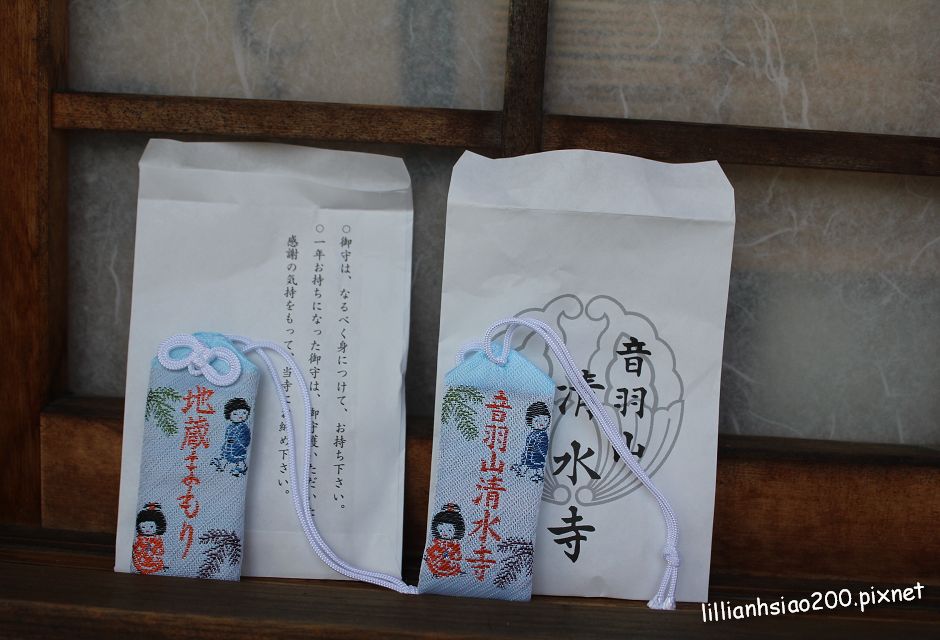 ○御守は、なるべく身につけて、お持ち下さい。
○一年お持ちになった御守は、御守護いただいた
感謝の気持をもって、当寺にお納め下さい。
地蔵まもり
音羽山清水寺
音羽山
清水寺
lillianhsiao200.pixnet